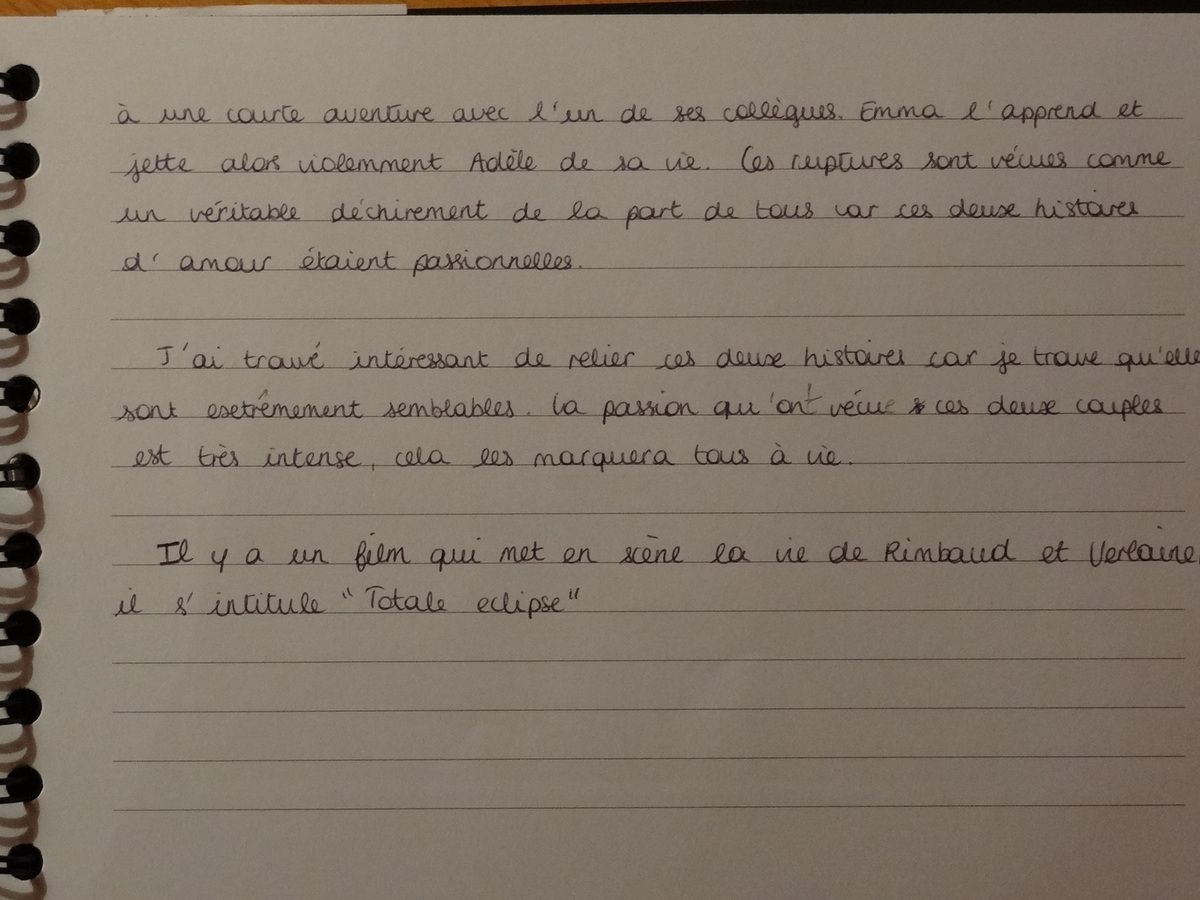 à une courte aventure avec l'un de ses collègues. Emma l'apprend et
jette alors violemment Adèle de sa vie. Ces ruptures sont vécues comme
un véritable déchirement de la part de tous car ces deux histoires
d'amour étaient passionnelles.
J'ai trouvé intéressant de relier ces deux histoires car je trouve qu'elle
sont extrêmement semblables. La passion qu'ont vécue ces deux couples
est très intense, cela les marquera tous à vie.
Il y a un film qui met en scène la vie de Rimbaud et Verlaine,
il s'intitule "Totale eclipse"